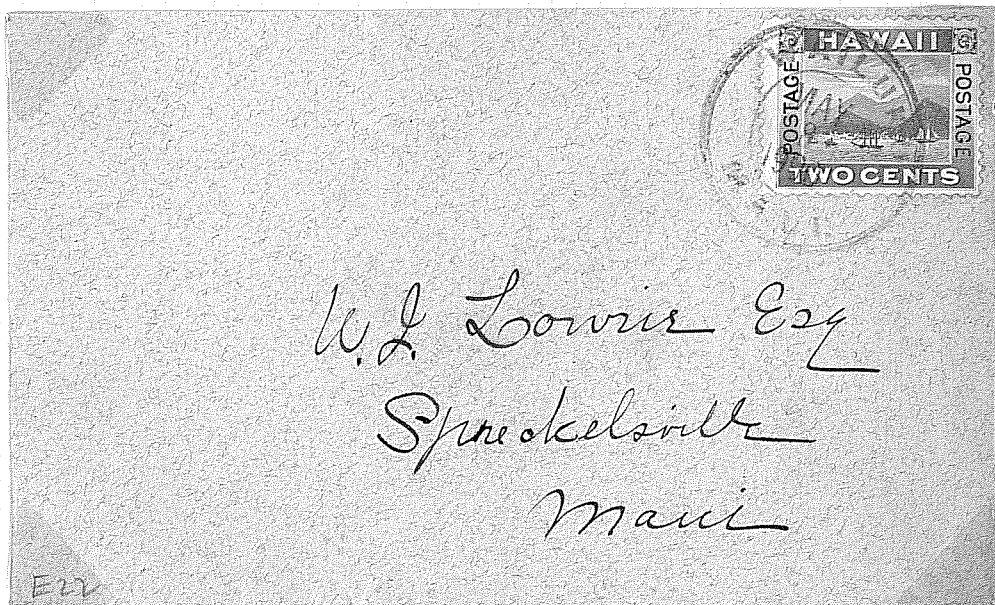 HAWAII
POSTAGE
POSTAGE
TWO CENTS
MAY
W. J. Lowrie Esq
Spreckelsville
Maui
E22